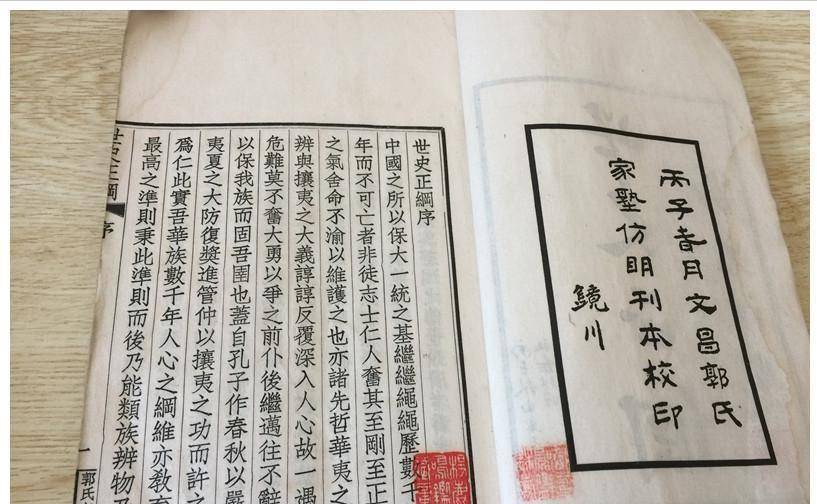 丙子春月文昌郭氏
家塾仿明刊本校印
鏡川
世史正綱序
中國之所以保大一統之基繼繼繩繩歷數千
年而不可亡者非徒志士仁人奮其至剛至正
之氣舍命不渝以維護之也亦諸先哲華夷之
辨與攘夷之大義諄諄反覆深入人心故一遇
危難莫不奮大勇以爭之前仆後繼邁往不辭
以保我族而固吾圉也蓋自孔子作春秋以嚴
夷夏之大防復獎進管仲以攘夷之功而許之
爲仁此實吾華族數千年人心之綱維亦敎
最高之準則秉此準則而後乃能類族辨物
世史正綱
序
一
郭氏